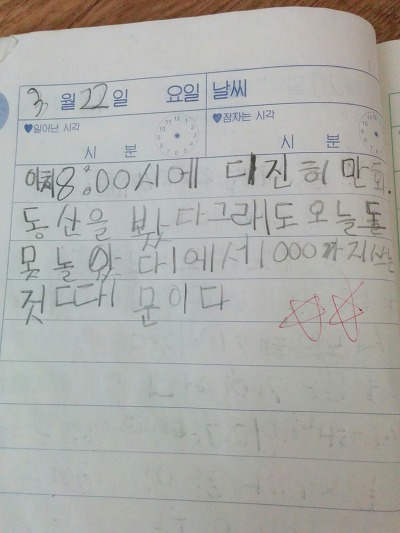 3월 22일 요일 날씨
♥일어난 시각 ♥잠자는 시각
시 분 시 분
아침8:00시에 디진히 만화.
동산을 봤다그래도오늘도
못놀았다1에서1000까지쓰는
것 때문이다